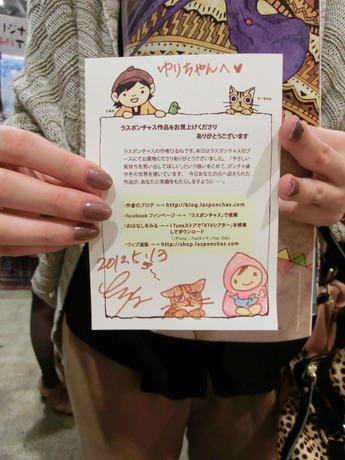 ゆりちゃんへ♥
ラスポンチャス作品をお買上げくださり
ありがとうございます
ラスポンチャスの作者ひるねです。本日はラスポンチャスのブ
ースにてお買物くださりありがとうございました。「やさしい
気持ちを思い出してほしい」という想いをこめて、ポンチャ達
やその世界を描いています。 今日あなたの元へ迎えられた
作品が、あなたに笑顔をもたらしますように――。
・作者のブログ →→ http://blog.lasponchas.com
・facebook ファンページ →→「ラスポンチャス」で検索
・おはなしをみる →→ iTuneストアで「KTVシアター」を検索
してダウンロード
・ウェブ通販 →→ http://shop.lasponchas.com
2012.5.13